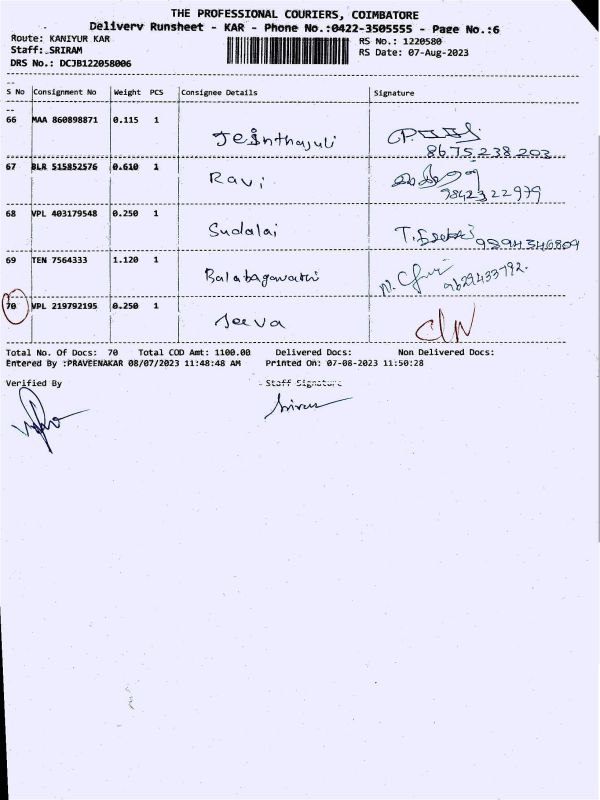 THE PROFESSIONAL COURIERS, COIMBATORE
Delivery Runsheet - KAR - Phone No.:0422-3505555 - Page No.:6
Route: KANIYUR KAR
RS No.: 1220580
Staff: SRIRAM
RS Date: 07-Aug-2023
DRS No.: DCJB122058006
S No Consignment No Weight PCS Consignee Details Signature
66 MAA 860898871 0.115 1
8675238203
67 BLR 515852576 0.610 1
Ravi
9842322979
68 VPL 403179548 0.250 1
Sudalai
9894346809
69 TEN 7564333 1.120 1
Balabagavathi
9629433792.
70 VPL 219792195 0.250 1
Jeeva
Total No. Of Docs: 70 Total COD Amt: 1100.00 Delivered Docs: Non Delivered Docs:
Entered By :PRAVEENAKAR 08/07/2023 11:48:48 AM Printed On: 07-08-2023 11:50:28
Verified By - Staff Signature